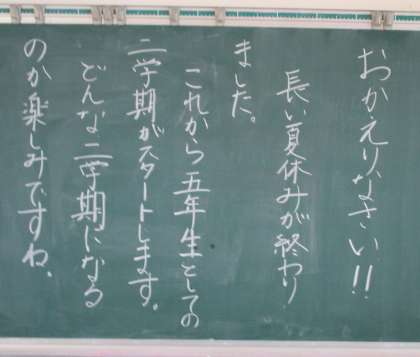 おかえりなさい!!
長い夏休みが終わり
ました。
これから五年生としての
二学期がスタートします。
どんな二学期になる
のか楽しみですね。